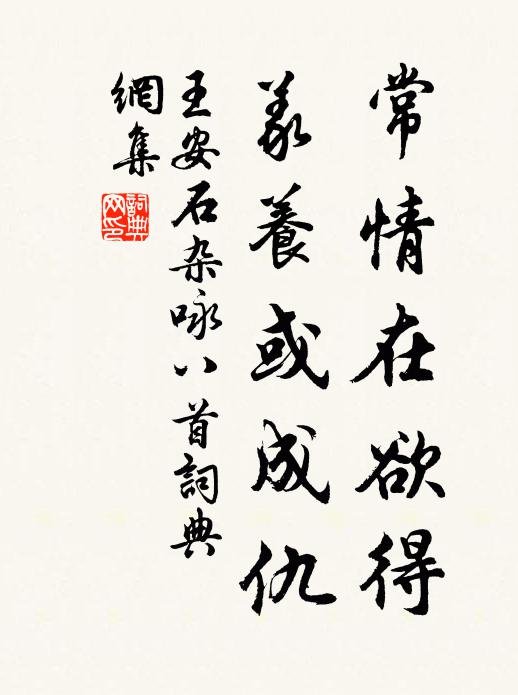 常情在欲得
豢養或成仇
王安石杂咏八首詞典
網集
詞典
网印